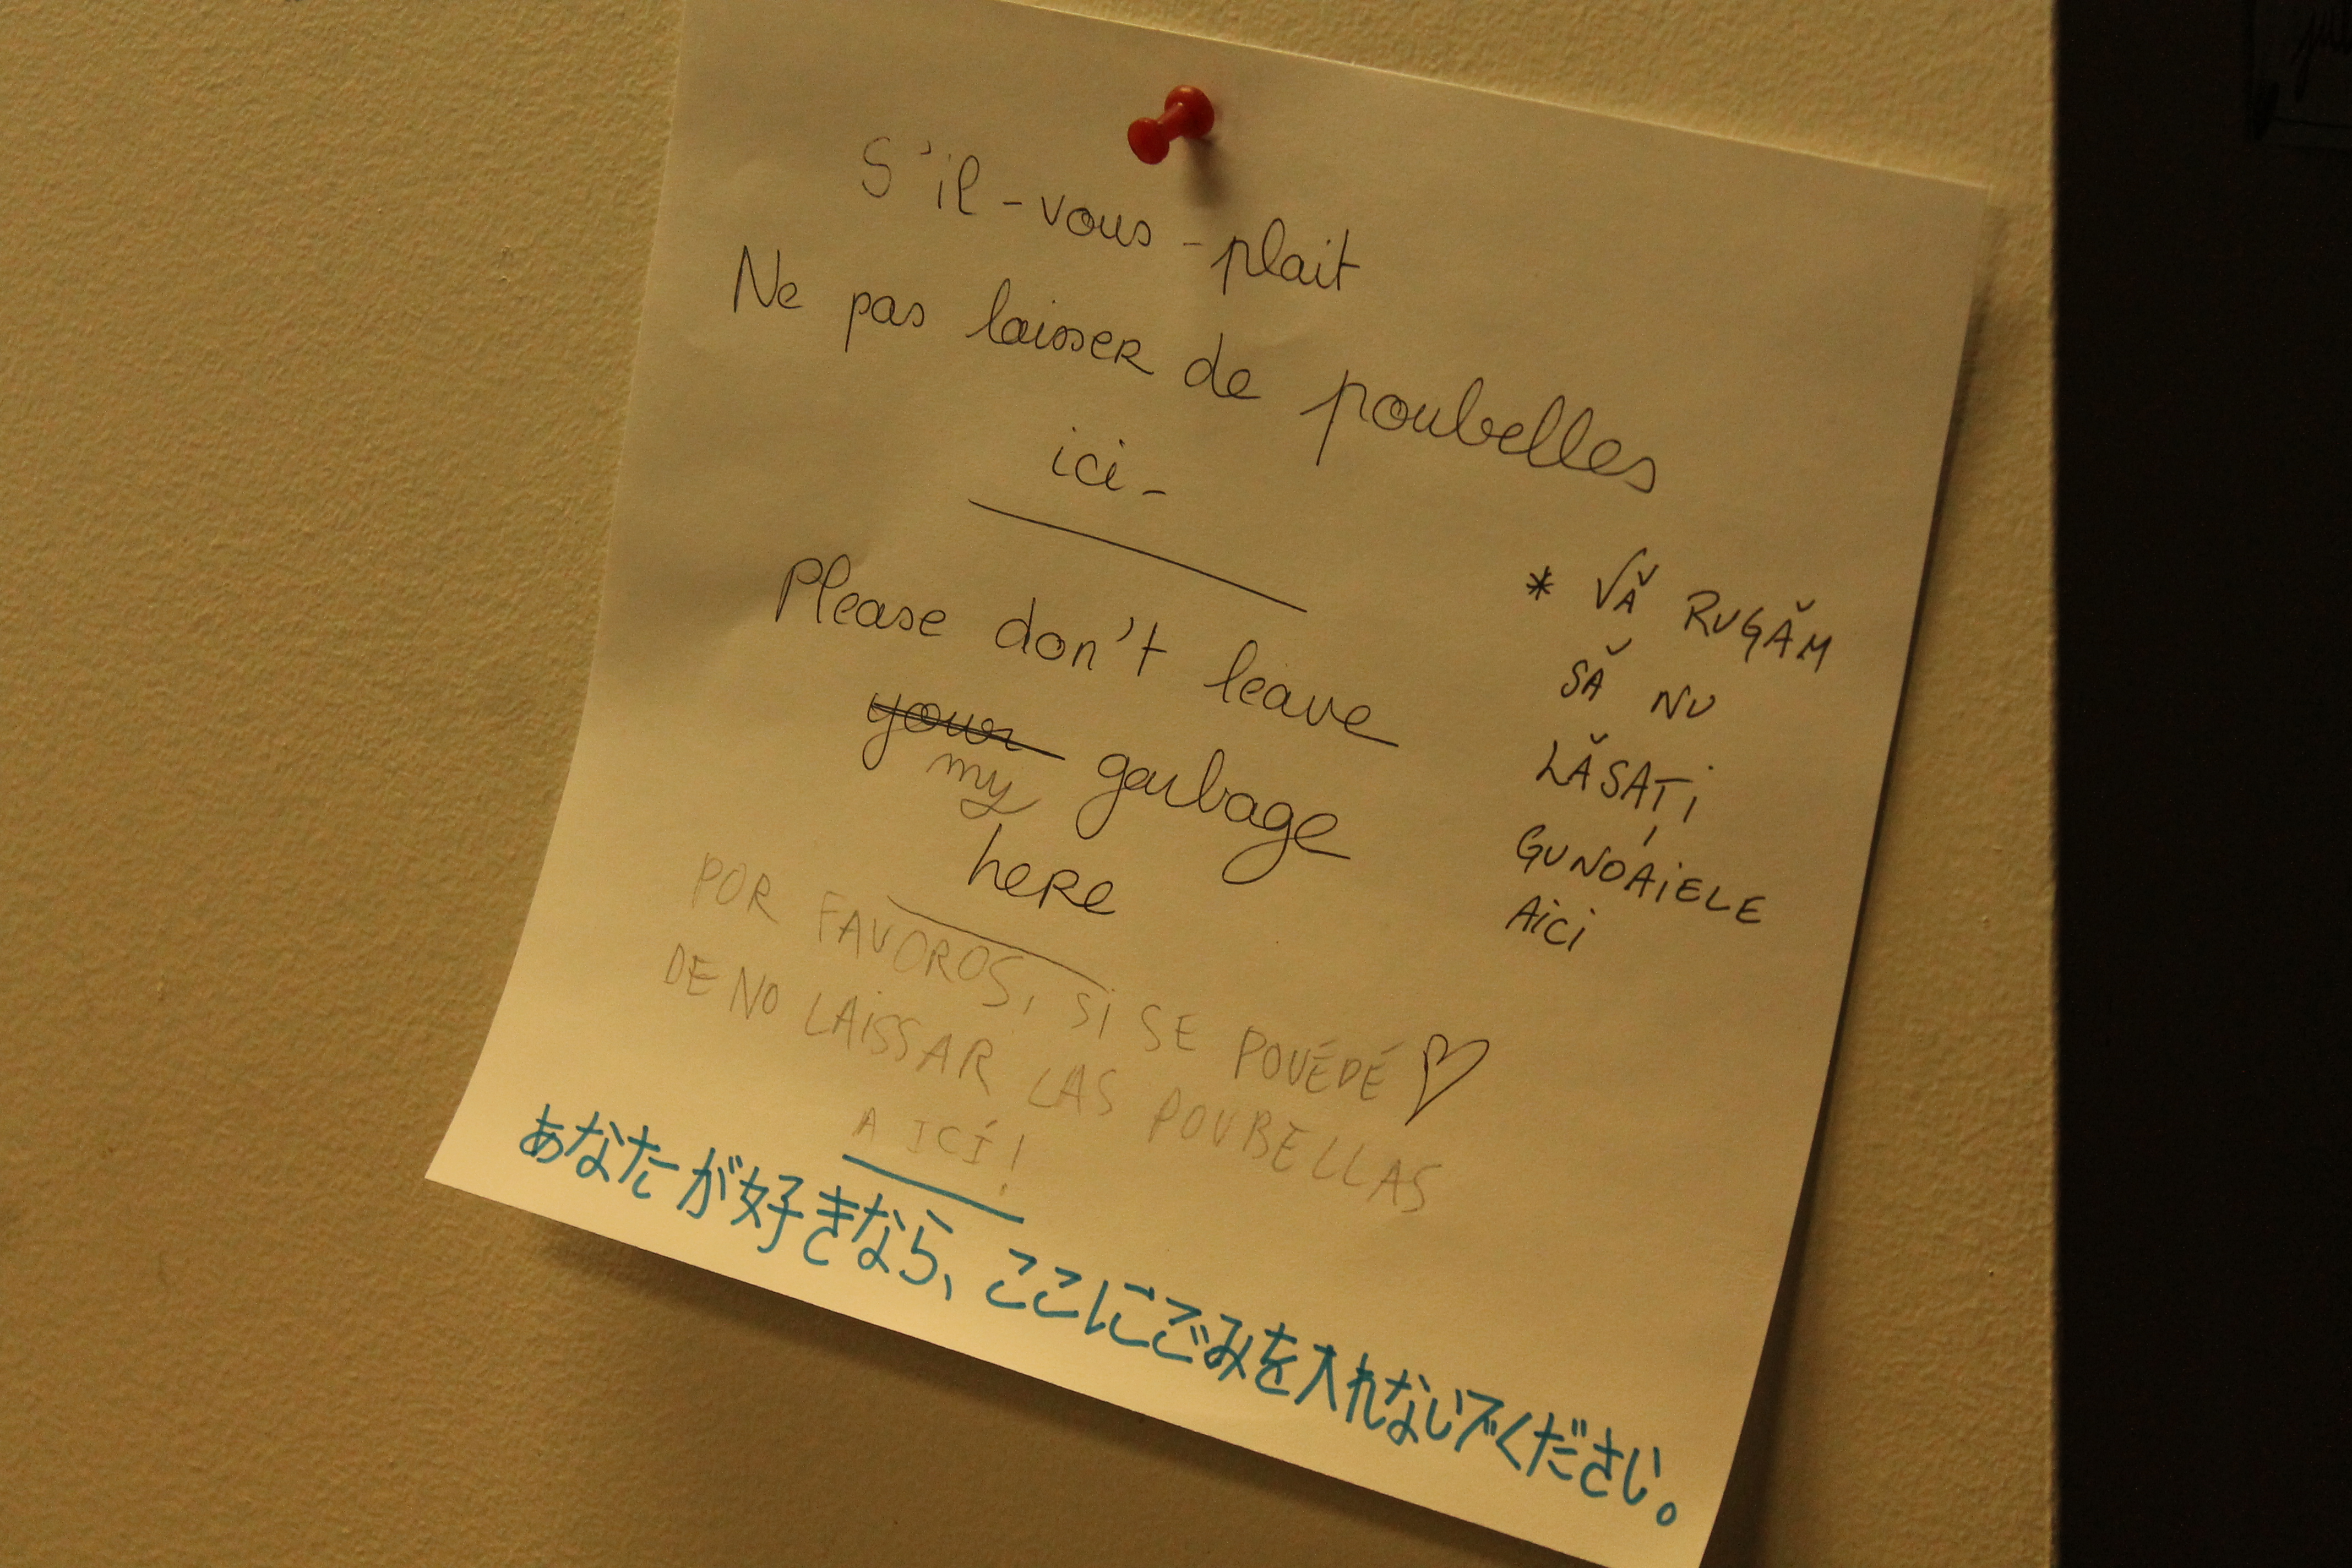 S'il-vous-plait
Ne pas laisser de poubelles
ici-
Please don't leave
your garbage
my
here
* VĂ RUGĂM
SĂ NU
LĂSAȚI
GUNOAIELE
AICI
POR FAVOROS, SI SE POUÉDÉ ♡
DE NO LAISSAR LAS POUBELLAS
A ICÍ!
あなたが好きなら、ここにごみを入れないでください。